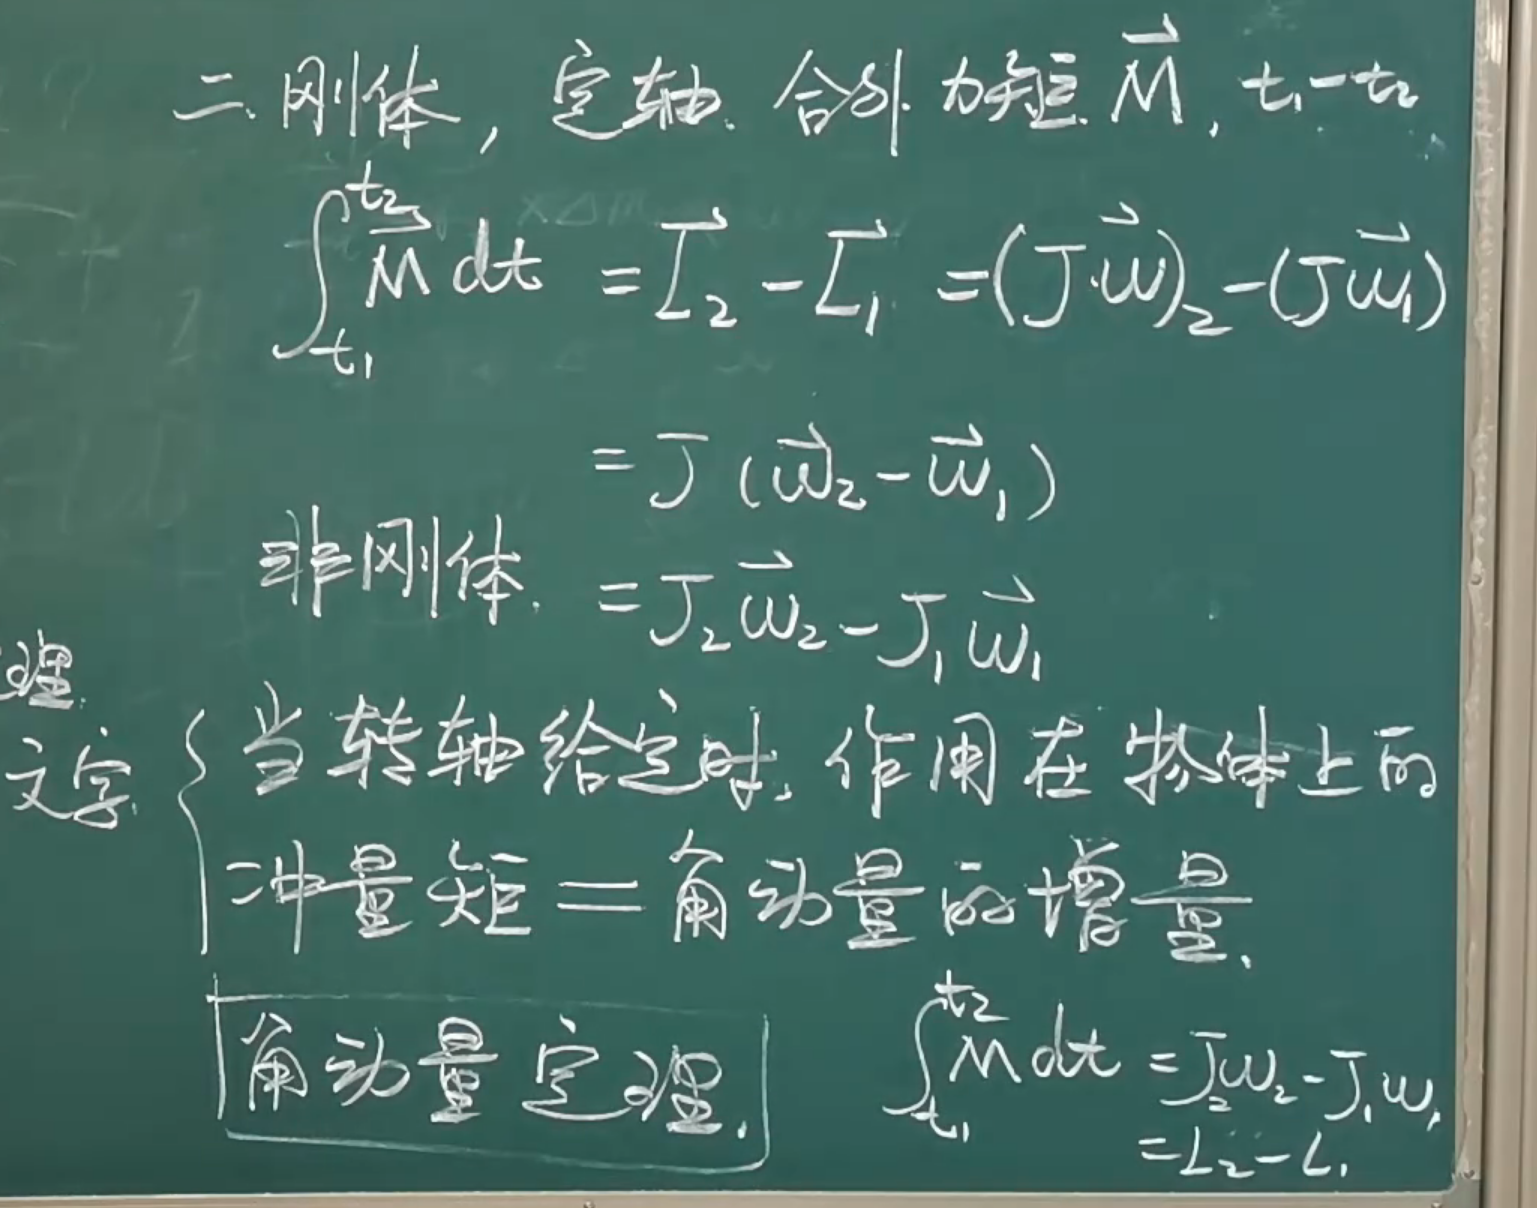 二.刚体,定轴.合外力矩 M⃗, t₁-t₂
∫_{t₁}^{t₂} M⃗ dt = L⃗₂ - L⃗₁ = (J·ω⃗)₂ - (Jω⃗₁)
= J (ω⃗₂ - ω⃗₁)
非刚体. = J₂ω⃗₂ - J₁ω⃗₁
理.
文字. { 当转轴给定时,作用在物体上的
冲量矩 = 角动量的增量.
角动量定理. ∫_{t₁}^{t₂} M dt = J₂ω₂ - J₁ω₁
= L₂ - L₁